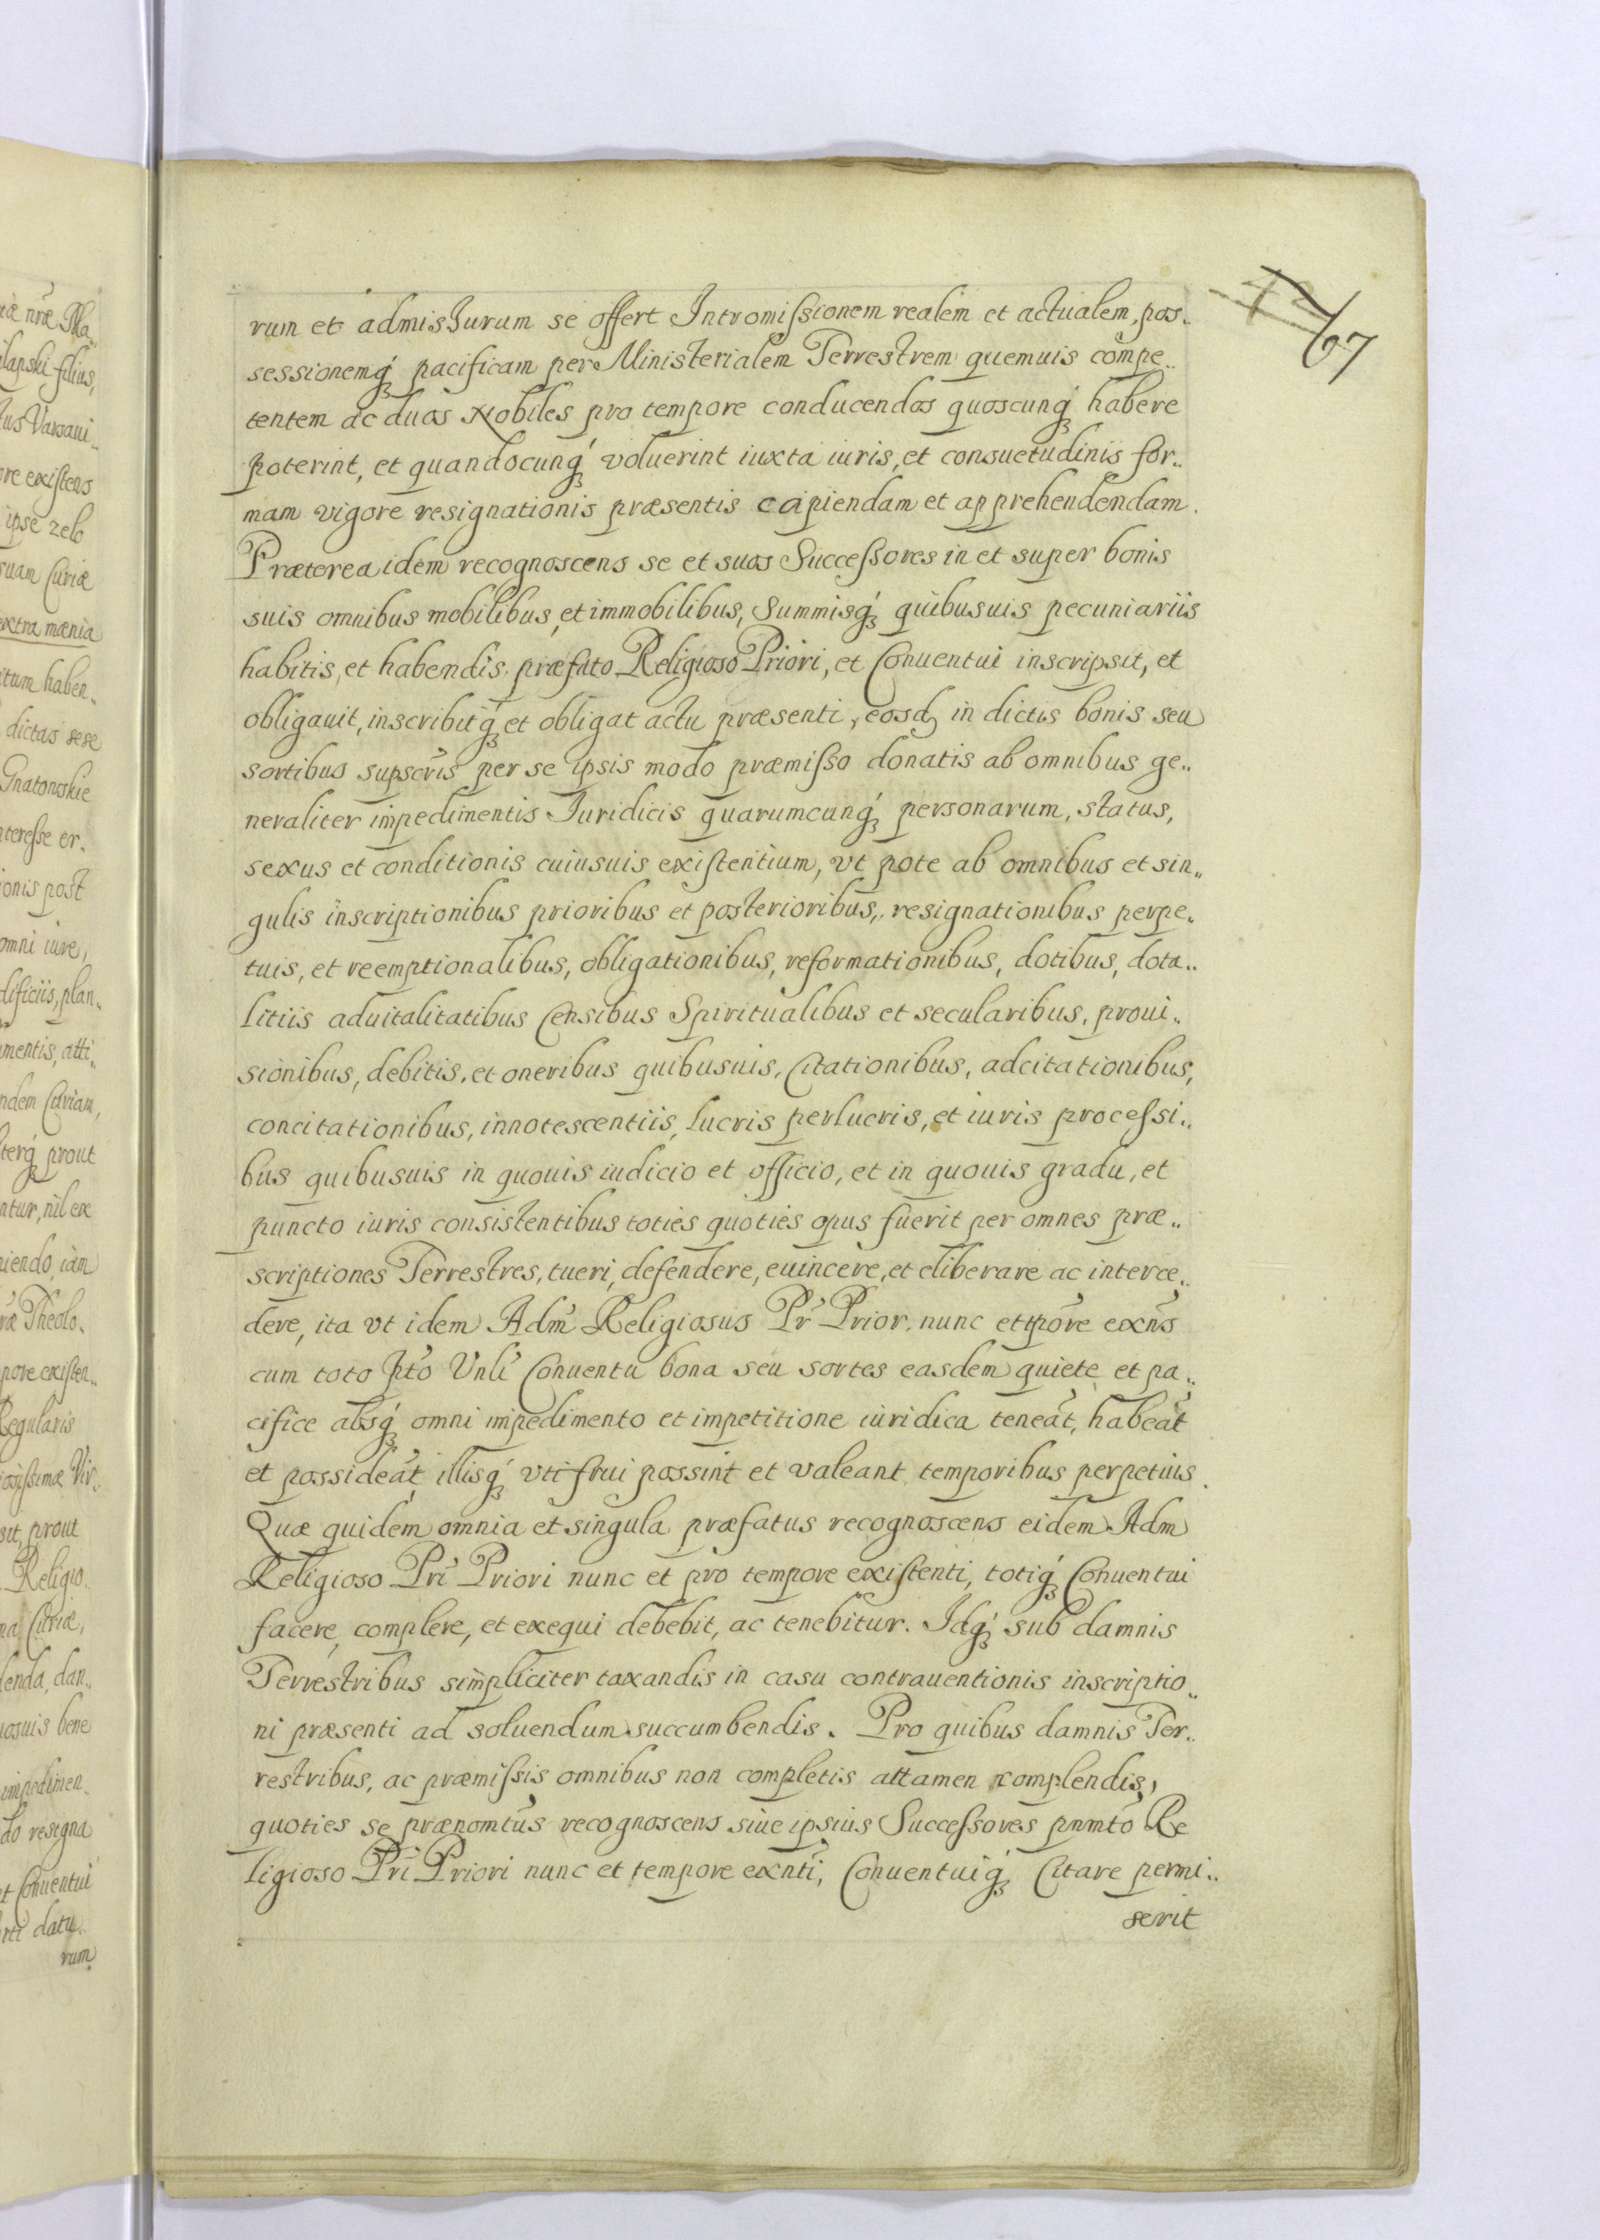 67
rum et admissurum se offert Intromissionem realem et actualem, pos..
sessionemq́ꝫ pacificam per Ministerialem Terrestrem quemuis compe..
tentem ac duos Nobiles pro tempore conducendos quoscunq́ꝫ habere
poterint, et quandocunq́ꝫ voluerint iuxta iuris, et consuetudinis for..
mam vigore resignationis præsentis capiendam et apprehendendam.
Præterea idem recognoscens se et suos Successores in et super bonis
suis omnibus mobilibus, et immobilibus, Summisq́ꝫ quibusuis pecuniariis
habitis, et habendis, præfato Religioso Priori, et Conuentui inscripsit, et
obligauit, inscribitq́ꝫ et obligat actu præsenti, eosdꝫ in dictis bonis seu
sortibus supscris per se ipsis modo præmisso donatis ab omnibus ge..
neraliter impedimentis Iuridicis quarumcunq́ꝫ personarum, status,
sexus et conditionis cuiusuis existentium, vt pote ab omnibus et sin..
gulis inscriptionibus prioribus et posterioribus, resignationibus perpe..
tuis, et reemptionalibus, obligationibus, reformationibus, dotibus, dota..
litiis aduitalitatibus Censibus Spiritualibus et secularibus, proui..
sionibus, debitis, et oneribus quibusuis, Citationibus, adcitationibus,
concitationibus, innotescentiis, lucris perlucris, et iuris processi..
bus quibusuis in quouis iudicio et officio, et in quouis gradu, et
puncto iuris consistentibus toties quoties opus fuerit per omnes præ..
scriptiones Terrestres, tueri, defendere, euincere, et eliberare ac interce..
dere, ita vt idem Adm̃ Religiosus Pr̃ Prior nunc et tpõre exñs
cum toto pt̃o Vnli Conuentu bona seu sortes easdem quiete et pa..
cifice absq́ꝫ omni impedimento et impetitione iuridica teneãt, habeãt
et possideãt, illisq́ꝫ vti frui possint et valeant temporibus perpetuis.
Quæ quidem omnia et singula præfatus recognoscens eidem Adm
Religioso Pr̃i Priori nunc et pro tempore existenti, totiq́ꝫ Conuentui
facere, complere, et exequi debebit, ac tenebitur. Idq́ꝫ sub damnis
Terrestribus simpliciter taxandis in casu contrauentionis inscriptio..
ni præsenti ad soluendum succumbendis. Pro quibus damnis Ter..
restribus, ac præmissis omnibus non completis attamen complendis,
quoties se prænomt̃us recognoscens siue ipsius Successores pnmt̃o Re
ligioso Pr̃i Priori nunc et tempore exnt̃i, Conuentuiq́ꝫ Citare permi..
serit